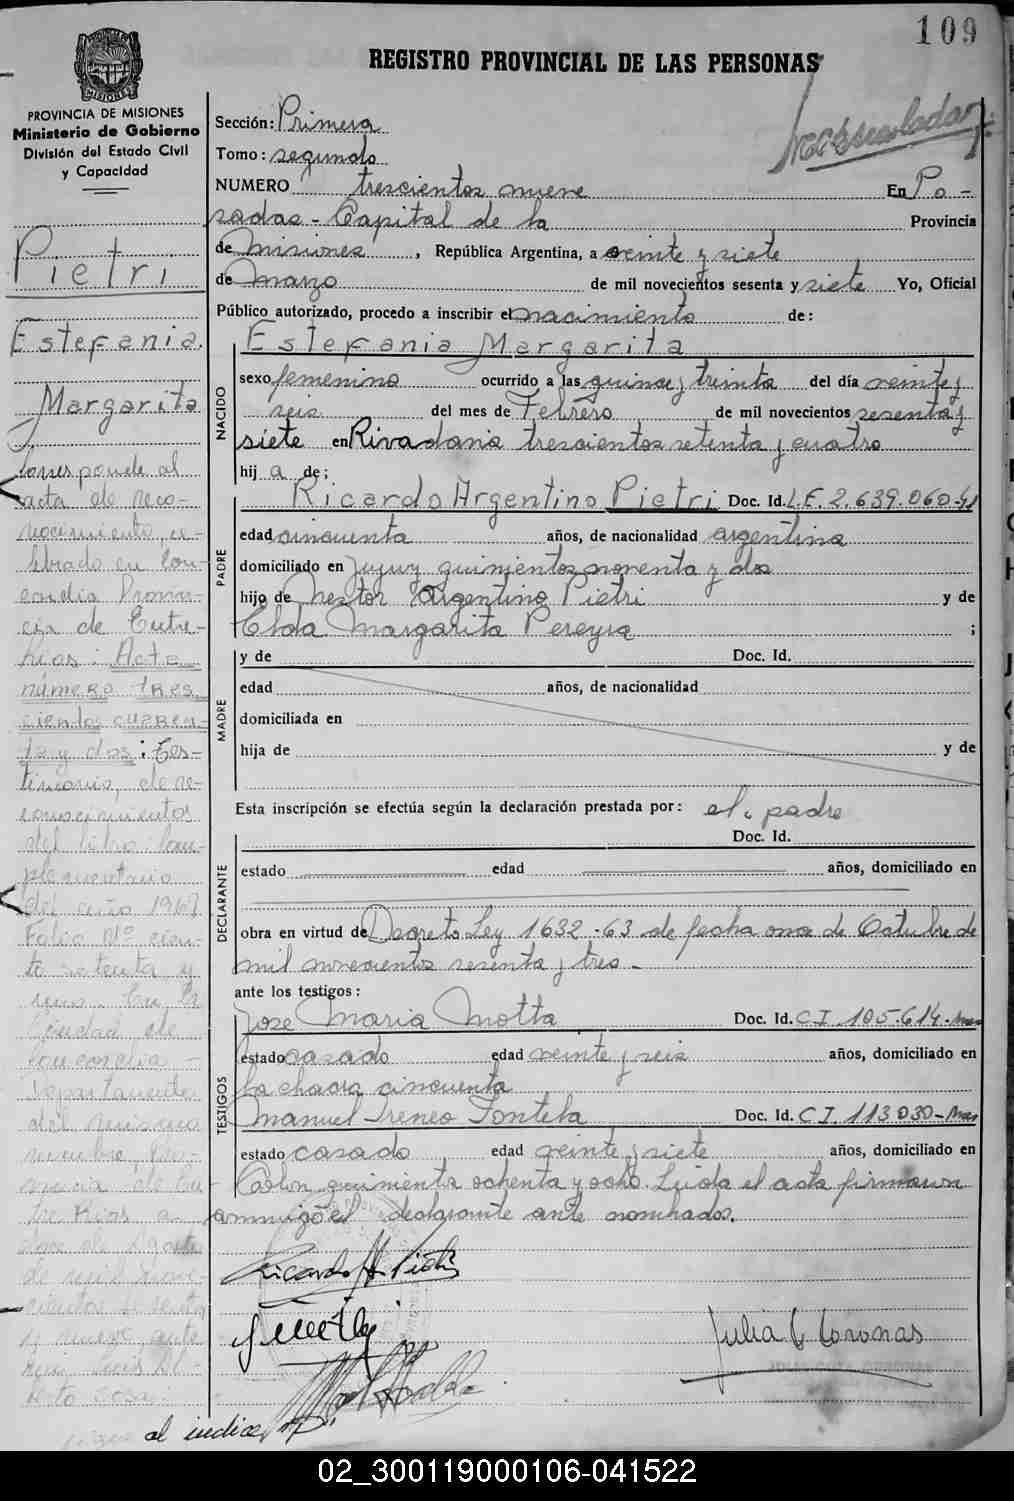 109
REGISTRO PROVINCIAL DE LAS PERSONAS
PROVINCIA DE MISIONES
Ministerio de Gobierno
División del Estado Civil
y Capacidad
Sección: Primera
Tomo: segundo
NUMERO trescientos nueve En Po-
sadas - Capital de la Provincia
de Misiones, República Argentina, a veinte y siete
de Marzo de mil novecientos sesenta y siete Yo, Oficial
Público autorizado, procedo a inscribir el nacimiento de:
Pietri
Estefania
Margarita
NACIDO
Estefania Margarita
sexo femenino ocurrido a las quince y treinta del día veinte y
seis del mes de Febrero de mil novecientos sesenta y
siete en Rivadavia trescientos setenta y cuatro
hija de:
PADRE
Ricardo Argentino Pietri Doc. Id. L.E. 2.639.060-
edad cincuenta años, de nacionalidad argentina
domiciliado en Jujuy quinientos noventa y dos
hijo de Nestor Argentino Pietri y de
Elda Margarita Pereyra ;
MADRE
y de Doc. Id.
edad años, de nacionalidad
domiciliada en
hija de y de
Esta inscripción se efectúa según la declaración prestada por: el padre
DECLARANTE
Doc. Id.
estado edad años, domiciliado en
obra en virtud de Decreto Ley 1632-63 de fecha once de Octubre de
mil novecientos sesenta y tres.-
ante los testigos:
TESTIGOS
Jose Maria Motta Doc. Id. C.I. 105.614-
estado casado edad veinte y seis años, domiciliado en
la chacra cincuenta
Manuel Ireneo Fontela Doc. Id. C.I. 113.030-
estado casado edad veinte y siete años, domiciliado en
Colon quinientos ochenta y ocho. Leida el acta firman
conmigo el declarante ante nombrados.
Corresponde al
acta de reco-
nocimiento, ce-
lebrado en Con-
cordia Provin-
cia de Entre-
Rios: Acta
número tres
cientos cuaren-
ta y dos: Tes-
timonio, de re-
conocimientos
del libro com-
plementario
del año 1967
Folio Nº cien-
to setenta y
uno. En la
Ciudad de
Concordia -
Departamento
del mismo
nombre, Pro-
vincia de En-
tre Rios a
doce de Agosto
de mil nove-
cientos sesenta
y nueve
Ricardo A. Pietri
Julia C Coronas
al indice
02_300119000106-041522